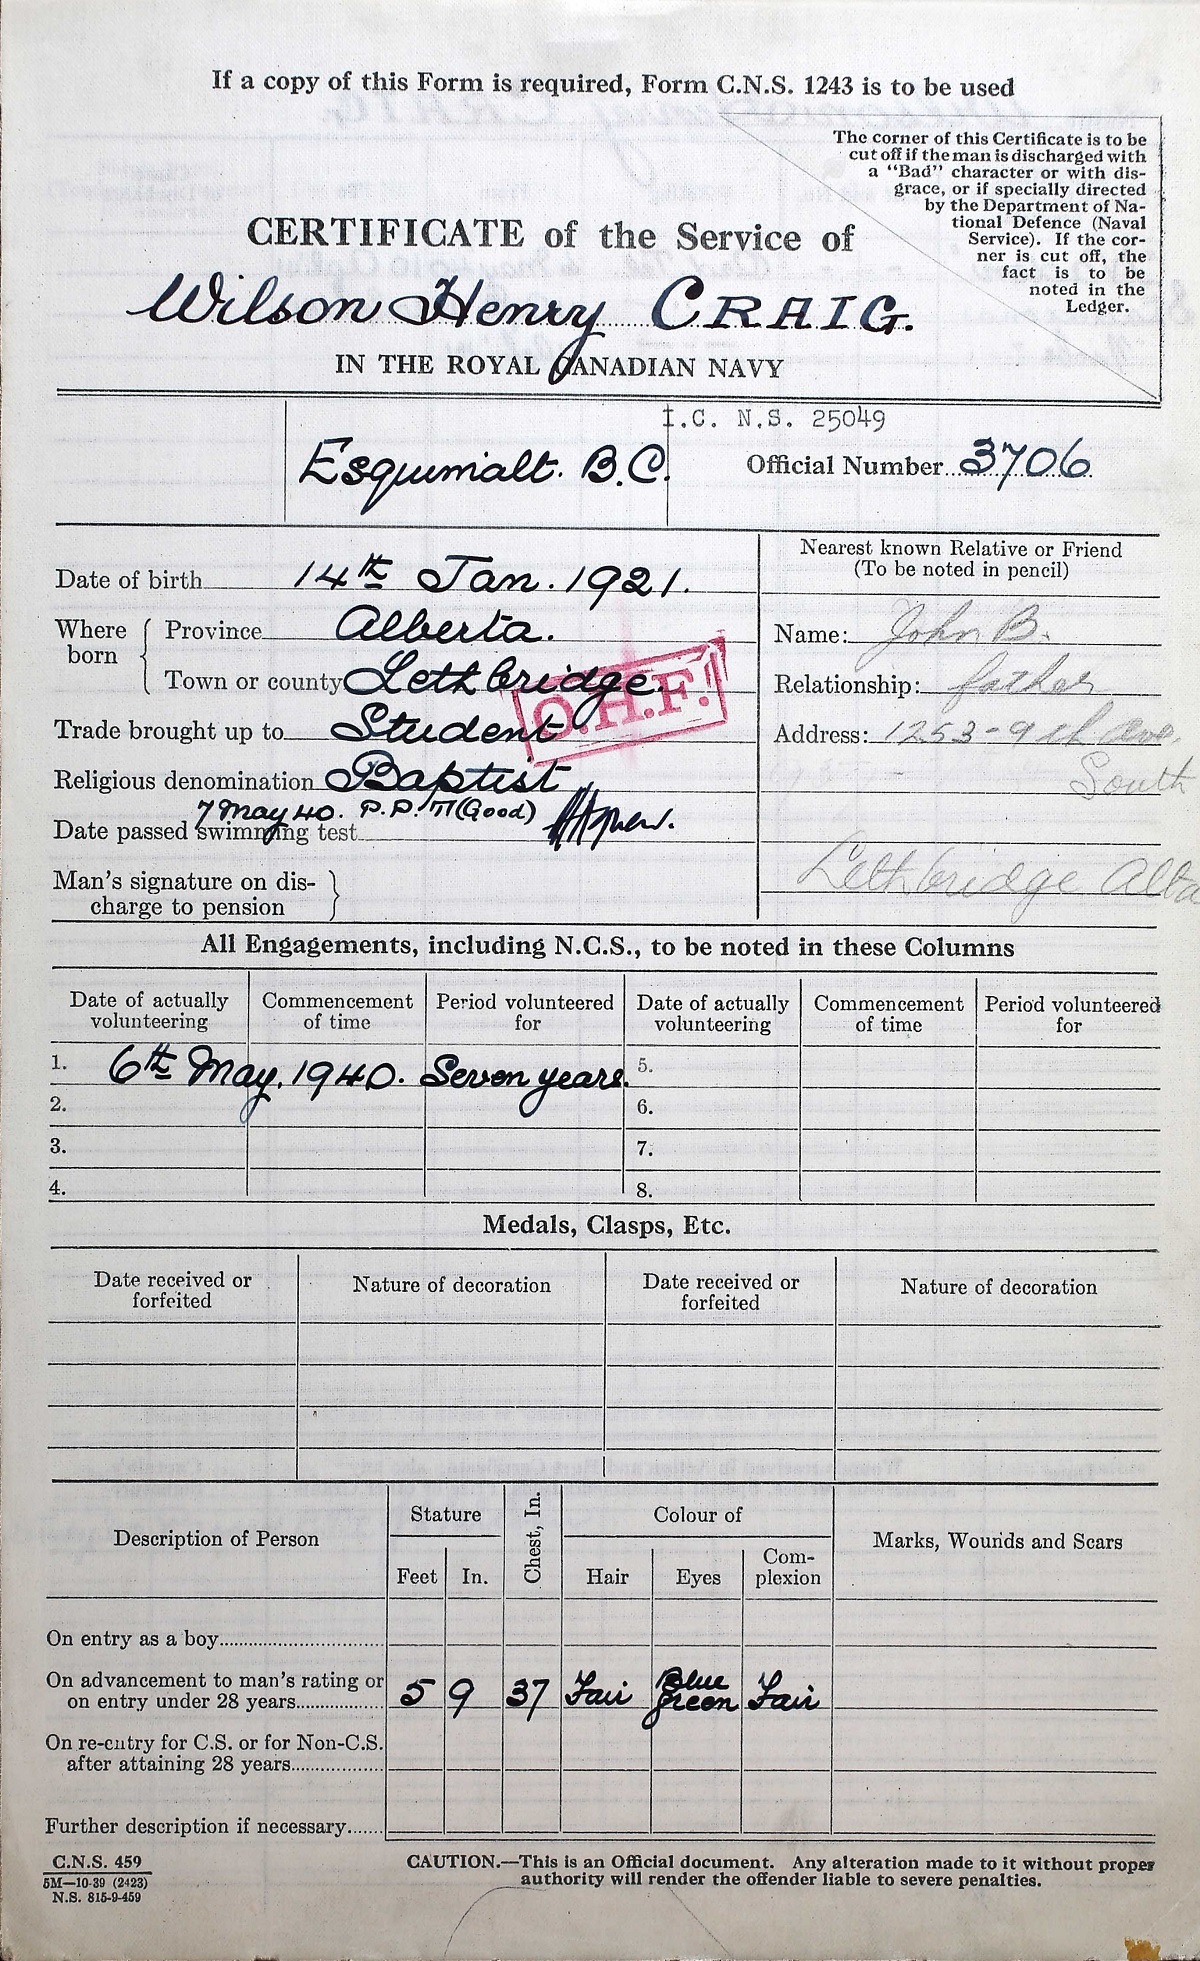 If a copy of this Form is required, Form C.N.S. 1243 is to be used
The corner of this Certificate is to be
cut off if the man is discharged with
a "Bad" character or with dis-
grace, or if specially directed
by the Department of Na-
tional Defence (Naval
Service). If the cor-
ner is cut off, the
fact is to be
noted in the
Ledger.
CERTIFICATE of the Service of
Wilson Henry CRAIG.
IN THE ROYAL CANADIAN NAVY
I.C. N.S. 25049
Esquimalt. B.C.
Official Number 3706
Date of birth 14th Jan. 1921.
Where born
Province Alberta.
Town or county Lethbridge.
O.H.F.
Trade brought up to Student
Religious denomination Baptist
7 May 40. P.P.T. (Good)
Date passed swimming test
Man's signature on dis-
charge to pension
Nearest known Relative or Friend
(To be noted in pencil)
Name: John B.
Relationship: father
Address: 1253-9th Ave.
South
Lethbridge Alta
All Engagements, including N.C.S., to be noted in these Columns
Date of actually volunteering
Commencement of time
Period volunteered for
Date of actually volunteering
Commencement of time
Period volunteered for
1. 6th May. 1940. Seven years. 5.
2. 6.
3. 7.
4. 8.
Medals, Clasps, Etc.
Date received or forfeited
Nature of decoration
Date received or forfeited
Nature of decoration
Description of Person
Stature
Feet In.
Chest, In.
Colour of
Hair Eyes Com-plexion
Marks, Wounds and Scars
On entry as a boy
On advancement to man's rating or
on entry under 28 years 5 9 37 Fair Blue Green Fair
On re-entry for C.S. or for Non-C.S.
after attaining 28 years
Further description if necessary
C.N.S. 459
5M—10-39 (2423)
N.S. 815-9-459
CAUTION.—This is an Official document. Any alteration made to it without proper
authority will render the offender liable to severe penalties.